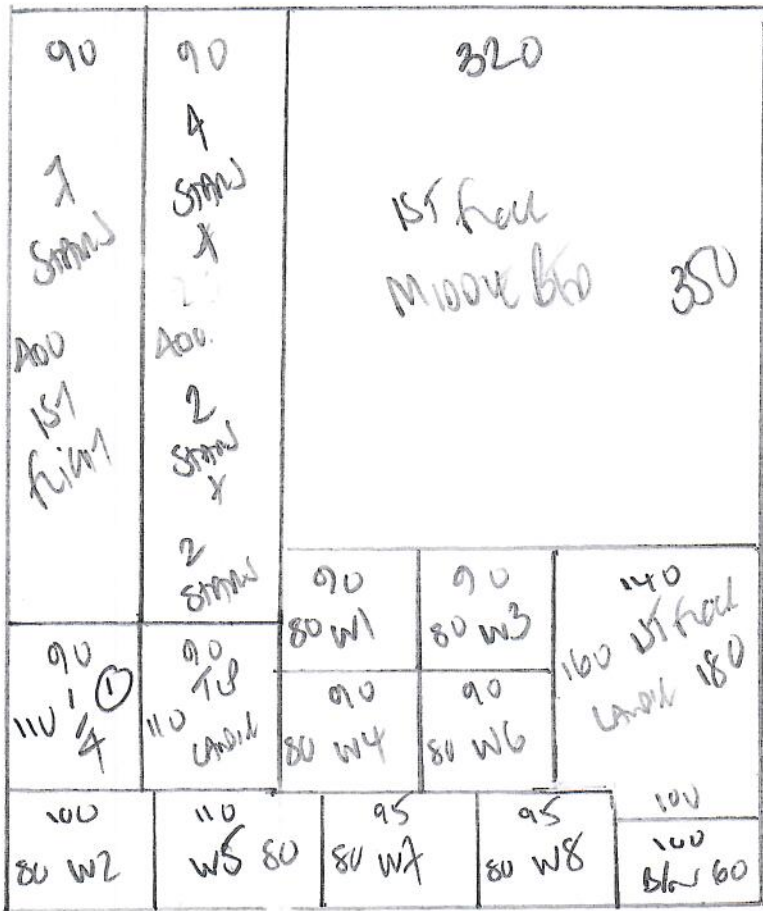 90
7
STAIRS
ADD
1ST
FLIGHT
90
4
STAIRS
+
ADD.
2
STAIRS
+
2
STAIRS
320
1ST FLOOR
MIDDLE BED
350
90
80 W1
90
80 W3
140
160 1ST FLOOR
LANDING 180
100
90
110 1/4 ①
90
TOP
110 LANDING
90
80 W4
90
80 W6
100
80 W2
110
W5 80
95
80 W7
95
80 W8
100
60